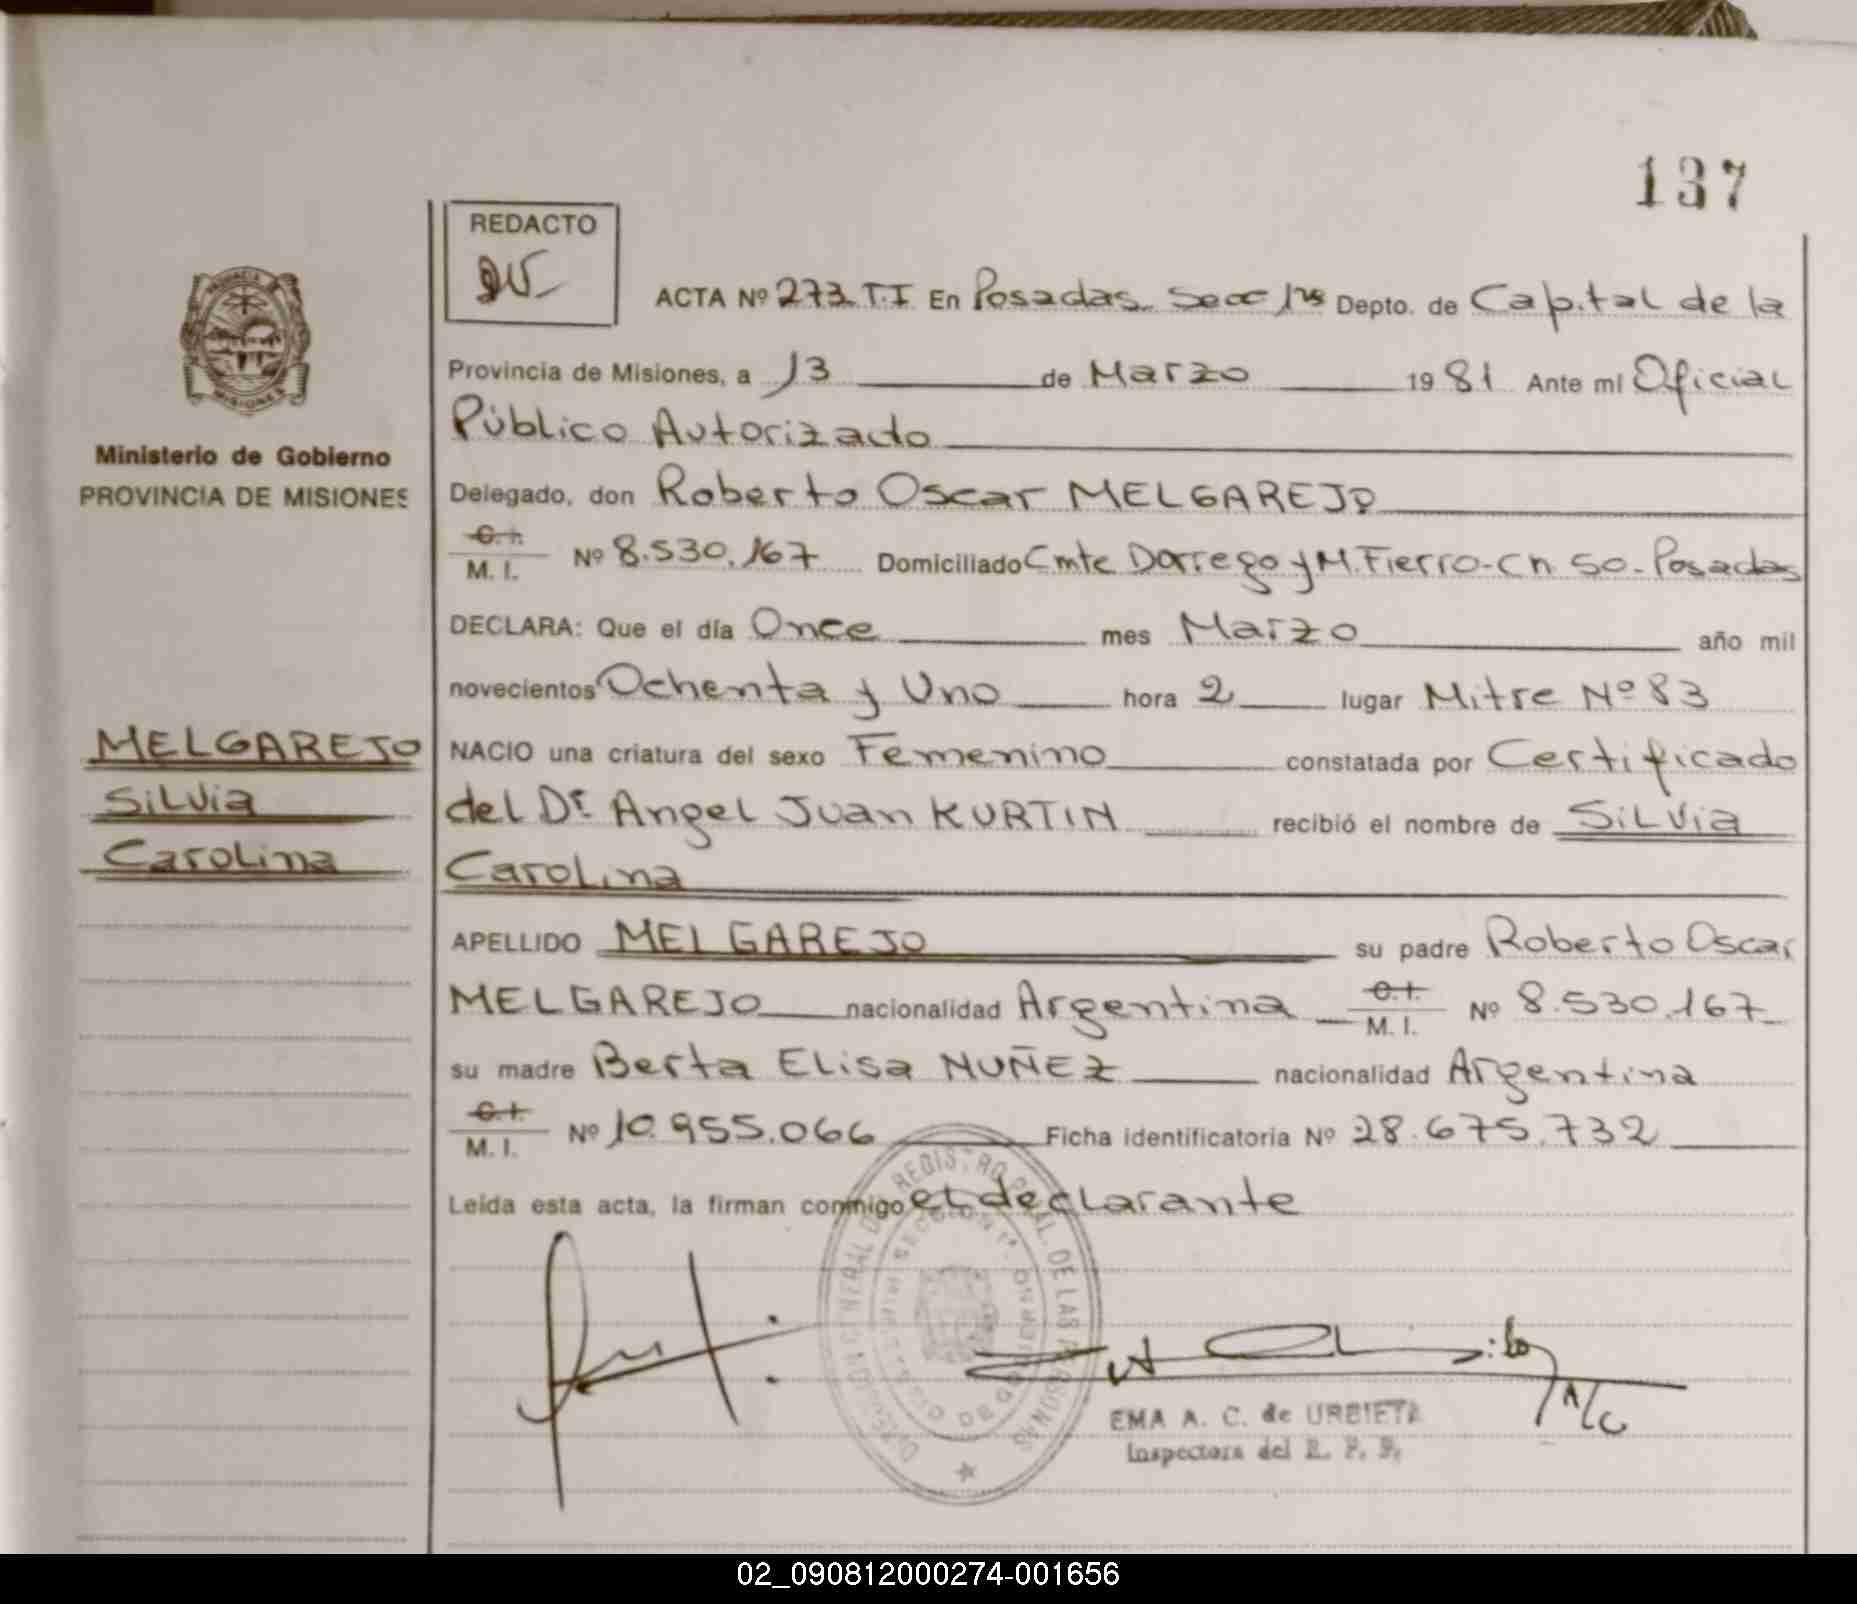 137
REDACTO
ACTA Nº 273 T.I En Posadas Secc 1ra Depto. de Capital de la
Provincia de Misiones, a 13 de Marzo 1981 Ante mí Oficial
Público Autorizado
Ministerio de Gobierno
PROVINCIA DE MISIONES
Delegado, don Roberto Oscar MELGAREJO
C. I.
M. I. Nº 8.530.167 Domiciliado Cmte Dorrego y M. Fierro-Cn 50-Posadas
DECLARA: Que el día Once mes Marzo año mil
novecientos Ochenta y Uno hora 2 lugar Mitre Nº 83
MELGAREJO
Silvia
Carolina
NACIO una criatura del sexo Femenino constatada por Certificado
del Dr. Angel Juan KURTIN recibió el nombre de Silvia
Carolina
APELLIDO MELGAREJO su padre Roberto Oscar
MELGAREJO nacionalidad Argentina C. I. M. I. Nº 8.530.167
su madre Berta Elisa NUÑEZ nacionalidad Argentina
C. I.
M. I. Nº 10.955.066 Ficha identificatoria Nº 28.675.732
Leída esta acta, la firman conmigo el declarante
DIRECCION GENERAL DEL REGISTRO PCIAL. DE LAS PERSONAS
A/C
EMA A. C. de URBIETA
Inspectora del R. P. P.
02_090812000274-001656